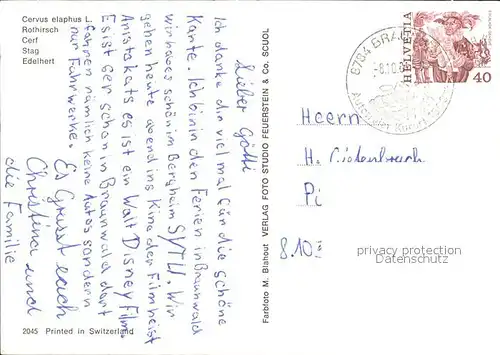 Cervus elaphus L.
Rothirsch
Cerf
Stag
Edelhert
Lieber Götti
Ich danke dir viel mal für die schöne
Karte. Ich bin in den Ferien in Braunwald
wir haben es schön im Bergheim SVTU. Wir
gehen heute abend ins Kino der Film heist
Aristokats es ist ein Walt Disney Film.
Es ist 6er schon in Braunwald dort
fahren nämlich keine Autos sondern
nur Fuhrwerke.
Es Grüsst euch
Christina und
die Familie
2045 Printed in Switzerland
Farbfoto M. Blahout VERLAG FOTO STUDIO FEUERSTEIN & Co. SCUOL
8784
HELVETIA
40
Heern
H.
Pi
8.10
privacy protection
Datenschutz